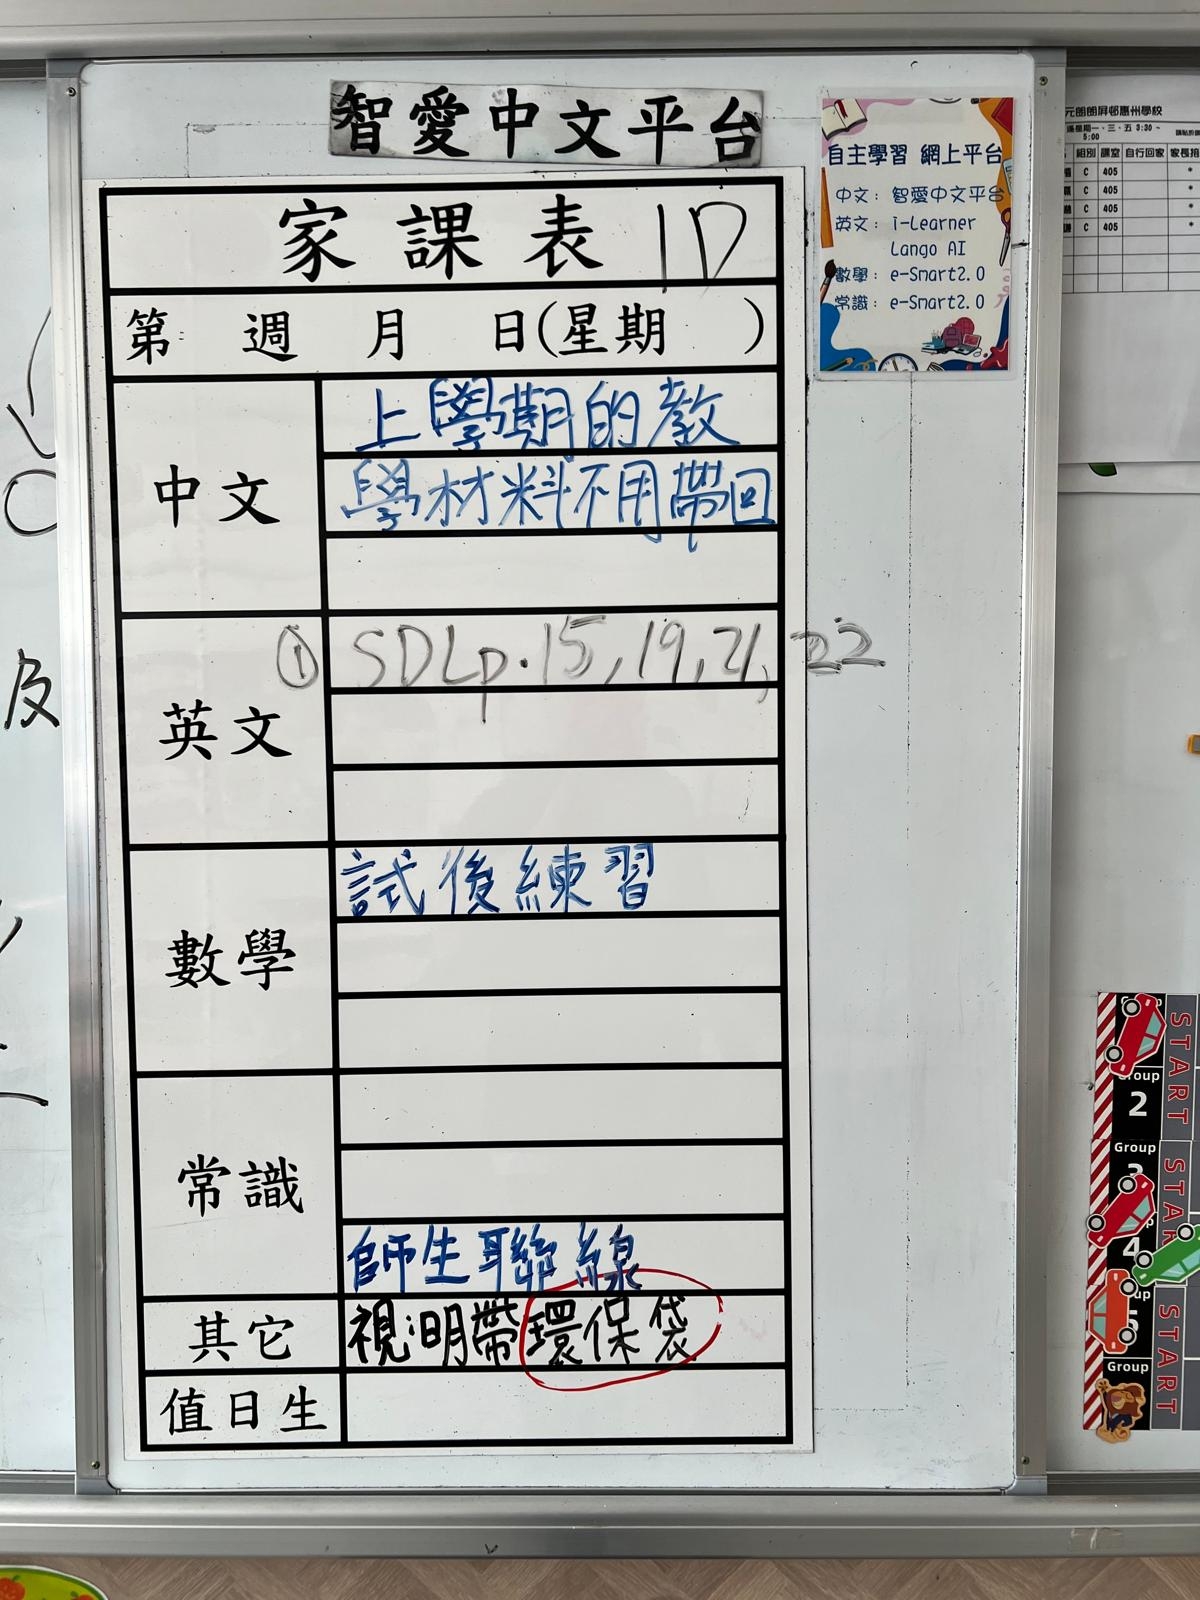 智愛中文平台
家課表 1D
第 週 月 日(星期 )
中文
上學期的教
學材料不用帶回
英文
① SDL p.15, 19, 21, 22
數學
試後練習
常識
師生聯線
其它
視:明帶環保袋
值日生
自主學習 網上平台
中文：智愛中文平台
英文：i-Learner
Lango AI
數學：e-Smart2.0
常識：e-Smart2.0
元朗朗屏邨惠州學校
逢星期一、三、五 3:30 ~
5:00
組別 課室 自行回家 家長接
C 405 *
C 405 *
C 405 *
C 405 *
及
START
Group
2
Group
3
START
4
5
START
Group